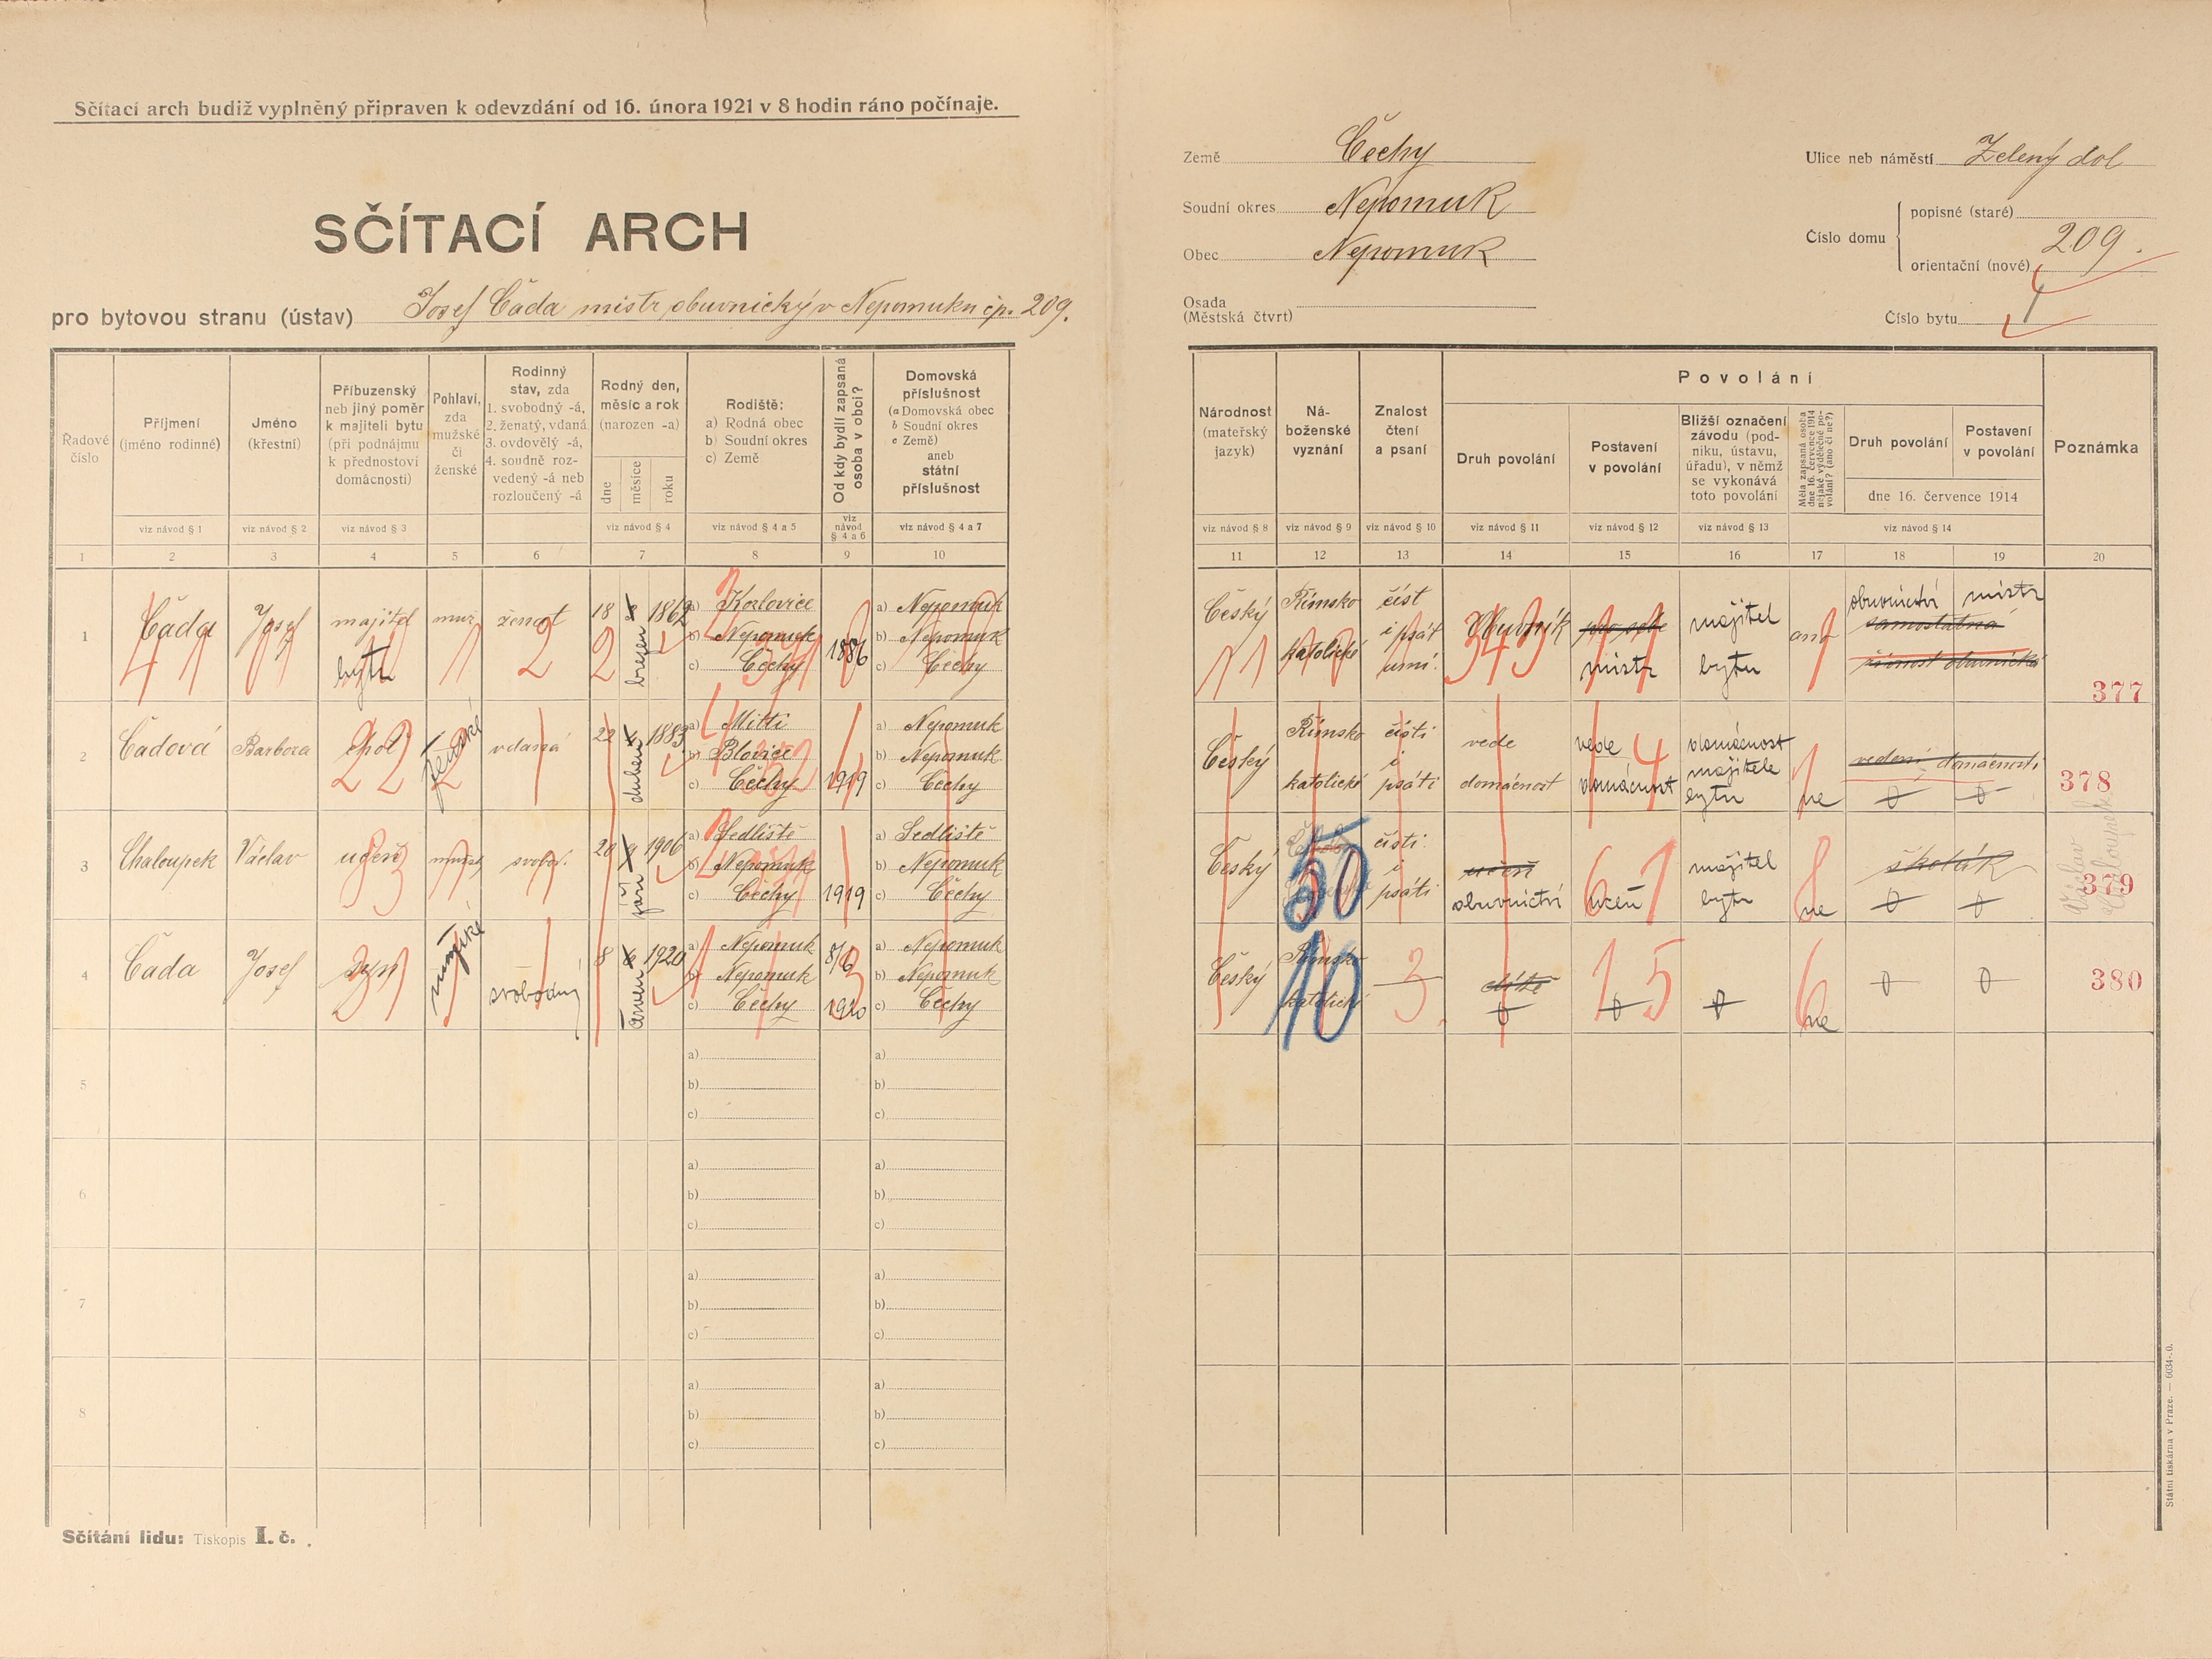 Sčítací arch budiž vyplněný připraven k odevzdání od 16. února 1921 v 8 hodin ráno počínaje.
SČÍTACÍ ARCH
pro bytovou stranu (ústav) Josef Čada mistr obuvnický v Nepomuku čp. 209.
Země Čechy
Soudní okres Nepomuk
Obec Nepomuk
Osada
(Městská čtvrt)
Ulice neb náměstí Zelený dol
Číslo domu
popisné (staré)
209.
orientační (nové)
Číslo bytu 1
Řadové číslo
Příjmení (jméno rodinné)
Jméno (křestní)
Příbuzenský neb jiný poměr k majiteli bytu (při podnájmu k přednostovi domácnosti)
Pohlaví, zda mužské či ženské
Rodinný stav, zda 1. svobodný -á, 2. ženatý, vdaná 3. ovdovělý -á, 4. soudně rozvedený -á neb rozloučený -á
Rodný den, měsíc a rok (narozen -a)
dne
měsíce
roku
Rodiště: a) Rodná obec b) Soudní okres c) Země
Od kdy bydlí zapsaná osoba v obci?
Domovská příslušnost (a Domovská obec b Soudní okres c Země) aneb státní příslušnost
Národnost (mateřský jazyk)
Náboženské vyznání
Znalost čtení a psaní
Povolání
Druh povolání
Postavení v povolání
Bližší označení závodu (podniku, ústavu, úřadu), v němž se vykonává toto povolání
Měla zapsaná osoba dne 16. července 1914 nějaké výdělečné povolání? (ano či ne?)
Druh povolání
Postavení v povolání
dne 16. července 1914
Poznámka
viz návod § 1
viz návod § 2
viz návod § 3
viz návod § 4
viz návod § 4 a 5
viz návod § 4 a 6
viz návod § 4 a 7
viz návod § 8
viz návod § 9
viz návod § 10
viz návod § 11
viz návod § 12
viz návod § 13
viz návod § 14
1 2 3 4 5 6 7 8 9 10 11 12 13 14 15 16 17 18 19 20
1 Čada Josef majitel bytu muž. ženat 18 březen 1862
a) Kozlovice
b) Nepomuk
c) Čechy
1886
a) Nepomuk
b) Nepomuk
c) Čechy
Český Římsko katolické číst i psát umí. Obuvník pro sebe mistr majitel bytu ano
obuvnictví mistr
samostatná
živnost obuvnická
377
2 Čadová Barbora choť ženské vdaná 22 duben 1883
a) Mítti
b) Blovice
c) Čechy
1919
a) Nepomuk
b) Nepomuk
c) Čechy
Český Římsko katolické čísti i psáti vede domácnost vede domácnost domácnost majitele bytu ne
vedení domácnosti
0 0
378
3 Chaloupek Václav učeň svobod. 20 září 1906
a) Sedliště
b) Nepomuk
c) Čechy
1919
a) Sedliště
b) Nepomuk
c) Čechy
Český 50 čísti i psáti učeň obuvnictví učeň majitel bytu ne
školák
0 0
Václav Chaloupek
379
4 Čada Josef syn mužské svobodný 8 červen 1920
a) Nepomuk
b) Nepomuk
c) Čechy
8/6 1920
a) Nepomuk
b) Nepomuk
c) Čechy
Český Římsko katolické 10 — 3 dítě 0 0 0 ne 0 0
380
5
a)
b)
c)
a)
b)
c)
6
a)
b)
c)
a)
b)
c)
7
a)
b)
c)
a)
b)
c)
8
a)
b)
c)
a)
b)
c)
Sčítání lidu: Tiskopis I. č.
Státní tiskárna v Praze. — 6034-.0.